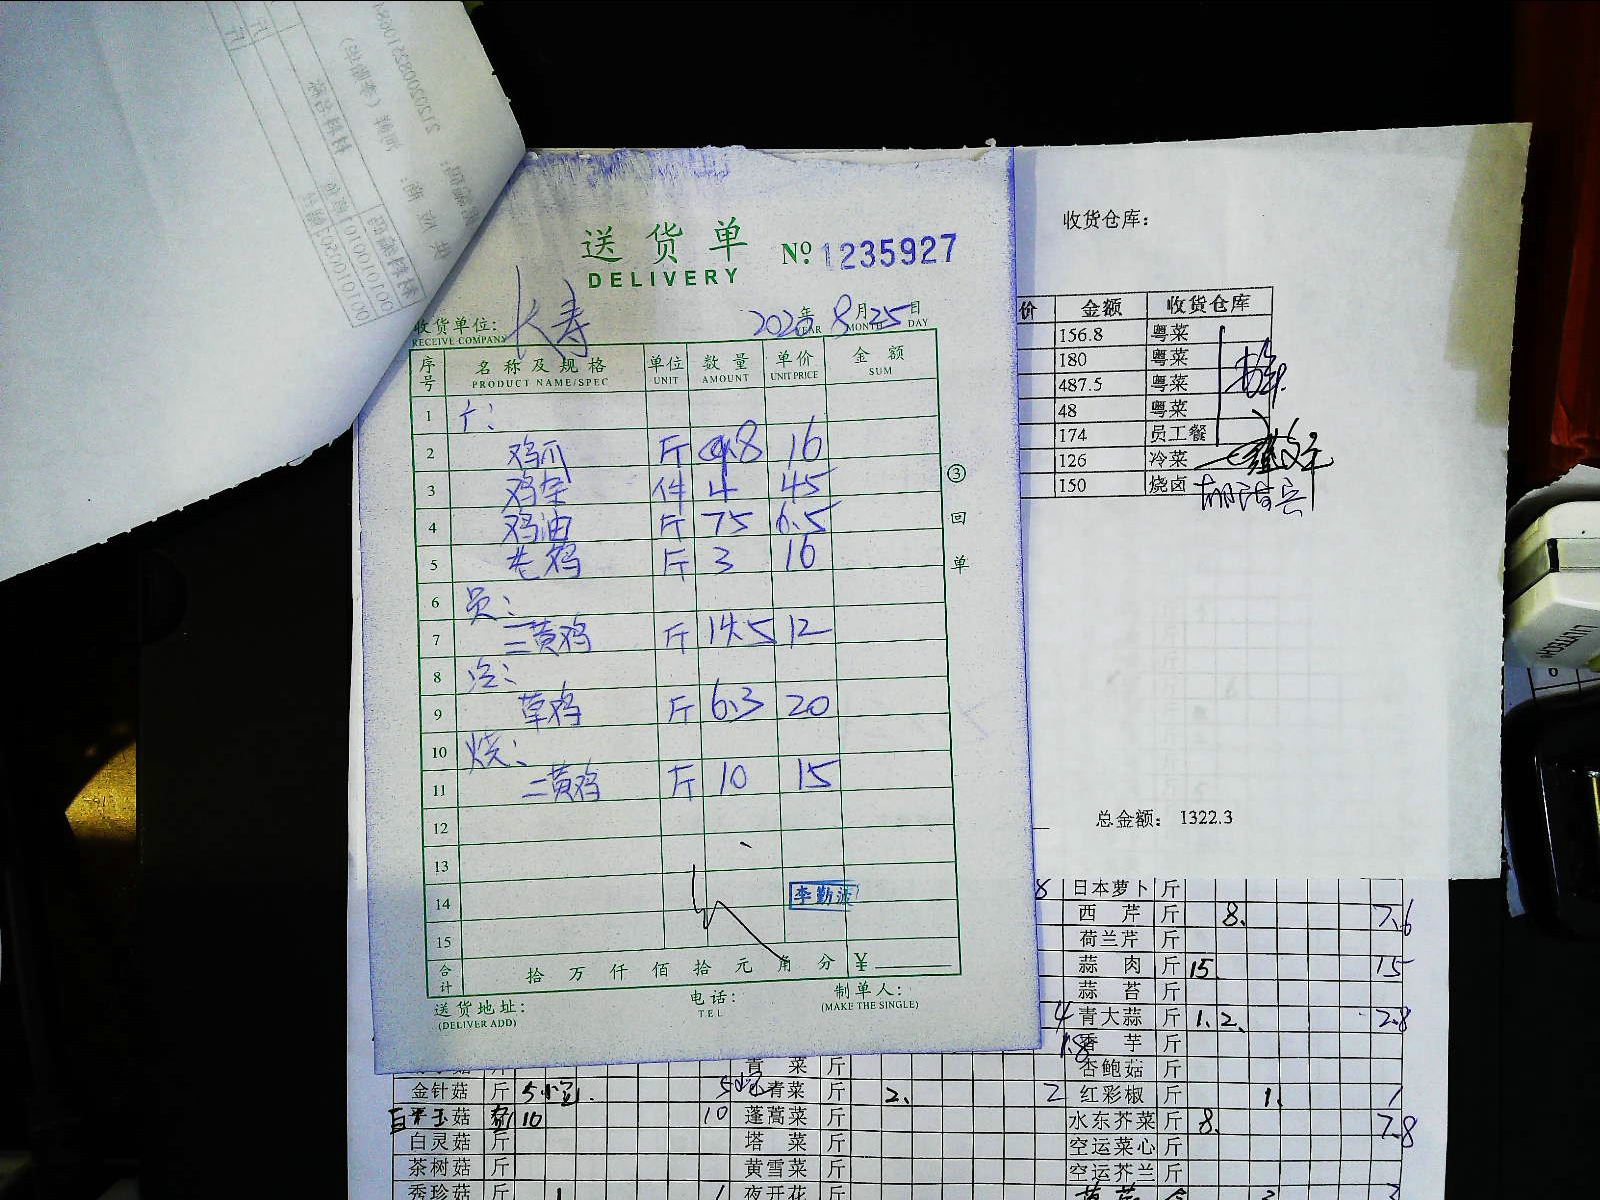 送货单
№ 1235927
DELIVERY
收货单位: 长寿
RECEIVE COMPANY
2020年 8月25日
YEAR MONTH DAY
序号 名称及规格 单位 数量 单价 金额
PRODUCT NAME/SPEC UNIT AMOUNT UNIT PRICE SUM
1
2 鸡爪 斤 9.8 16
3 鸡杂 件 4 45
4 鸡油 斤 75 6.5
5 老鸡 斤 3 16
6 员:
7 三黄鸡 斤 14.5 12
8 冷:
9 草鸡 斤 6.3 20
10 烧:
11 三黄鸡 斤 10 15
12
13
14
15
李勤波
合计 拾 万 仟 佰 拾 元 角 分 ¥
送货地址:
(DELIVER ADD)
电话:
TEL
制单人:
(MAKE THE SINGLE)
③回单
收货仓库:
价 金额 收货仓库
156.8 粤菜
180 粤菜
487.5 粤菜
48 粤菜
174 员工餐
126 冷菜
150 烧卤
总金额: 1322.3
8 日本萝卜 斤
西芹 斤 8. 7.6
荷兰芹 斤
蒜肉 斤 15. 15
蒜苔 斤
4 青大蒜 斤 1. 2. 2.8
1.8 香芋 斤
青菜 斤 杏鲍菇 斤
金针菇 斤 5 青菜 斤 2. 2 红彩椒 斤 1. 1
白玉菇 10 10 蓬蒿菜 斤 水东芥菜 斤 8. 7.8
白灵菇 斤 塔菜 斤 空运菜心 斤
茶树菇 斤 黄雪菜 斤 空运芥兰 斤
秀珍菇 斤 1 1 夜开花 斤